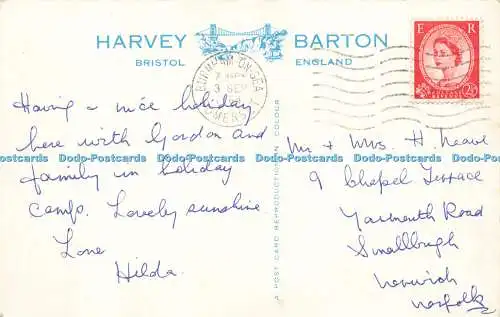 HARVEY BARTON
BRISTOL ENGLAND
E R
POSTAGE
2½D
BURNHAM-ON-SEA
3 SEP
SOMERSET
Having a nice holiday
here with Gordon and
family in holiday
camp. Lovely sunshine
Love
Hilda.
A POST CARD REPRODUCTION IN COLOUR
Mr + Mrs. H. Neave
9 Chapel Terrace
Yarmouth Road
Smallburgh
Norwich
Norfolk
Dodo-Postcards Dodo-Postcards Dodo-Postcards Dodo-Postcards Dodo-Postcards